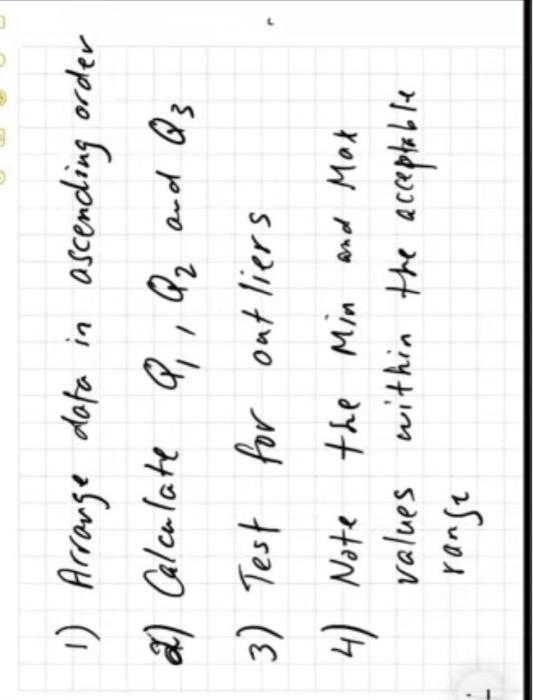 1) Arrange data in ascending order
2) Calculate Q1, Q2 and Q3
3) Test for outliers
4) Note the Min and Max
values within the acceptable
range